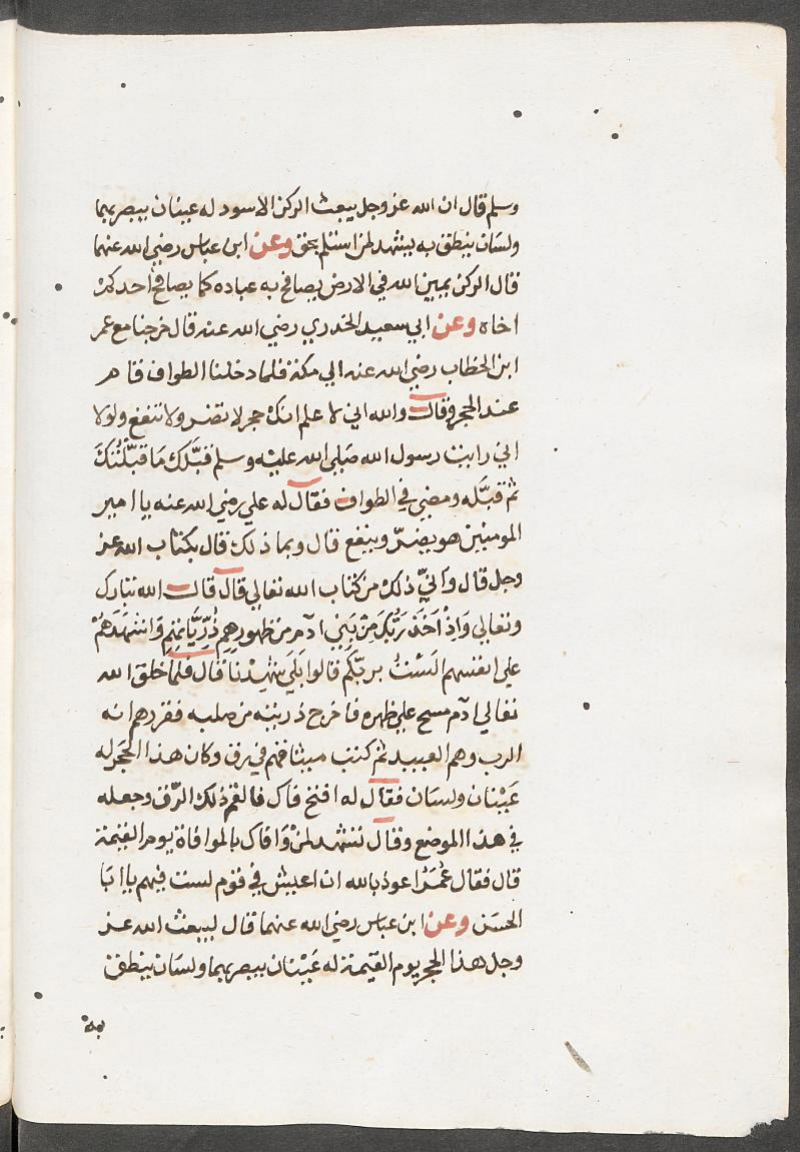 وسلم قال ان الله عز وجل يبعث الركن الاسود له عينان يبصر بهما
ولسان ينطق به يشهد لمن استلم بحق وعن ابن عباس رضي الله عنهما
قال الركن يمين الله في الارض يصافح به عباده كما يصافح احدكم
اخاه وعن ابي سعيد الخدري رضي الله عنه قال خرجنا مع عمر
ابن الخطاب رضي الله عنه الي مكة فلما دخلنا الطواف قام
عند الحجر وقال والله اني لا علم انك حجر لا تضر ولا تنفع ولولا
اني رايت رسول الله صَلي الله عليْه وسلم قبَّلك مَا قبَّلتُكَ
ثم قبَّله ومضي في الطواف فقال له علي رضي الله عنه يا امير
المومنين هو يضرّ وينفع قال وبما ذلك قال بكتاب الله عز
وجل قال وَانيّ ذلك من كتاب الله تعالي قال قال الله تبارك
وتعالي وَاِذْ اَخَذَ رَبُّكَ مِنْ بَنِي ادم من ظهورِهِم ذُرِّيَّاتِهِم وَاشهَدَهُمْ
علي انفسهم اَلسْتُ بربّكم قالوا بَلَي شهِدْنا قال فلما خلق الله
تعالي ادم مسح علي ظهره فاخرج ذريته من صلبه فقررهم انه
الرب وهم العبيد ثم كتب ميثاقهم في رق وكان هذا الحَجَر له
عَيْنان ولسَان فقال له افتح فاك فالقم ذلك الرّق وجعله
في هذا الموضع وقال تشهد لمنْ وَافاك بالموافاة يوم القيمة
قال فقال عُمَرُ اعوذ بالله ان اعيش في قوم لست فيهم يا ابَا
الحسَن وعن ابن عباس رضي الله عنهما قال ليبعث الله عز
وجل هذا الحجر يوم القيمة له عَيْنان يبصر بهما ولسَان ينطق
به